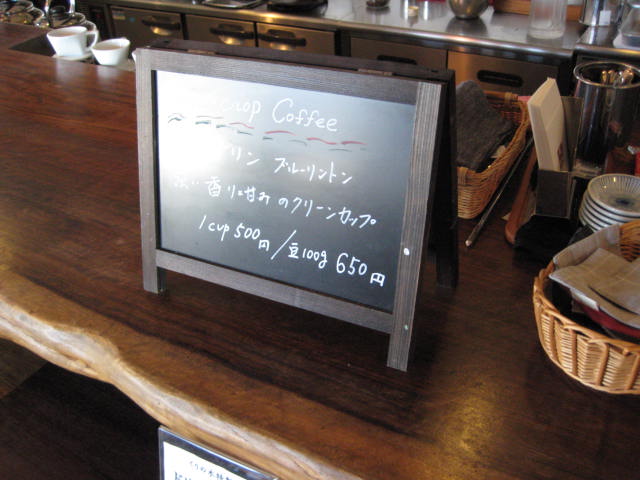 crop Coffee
リン ブルーリントン
香り甘みのクリーンカップ
1cup 500円/豆100g 650円